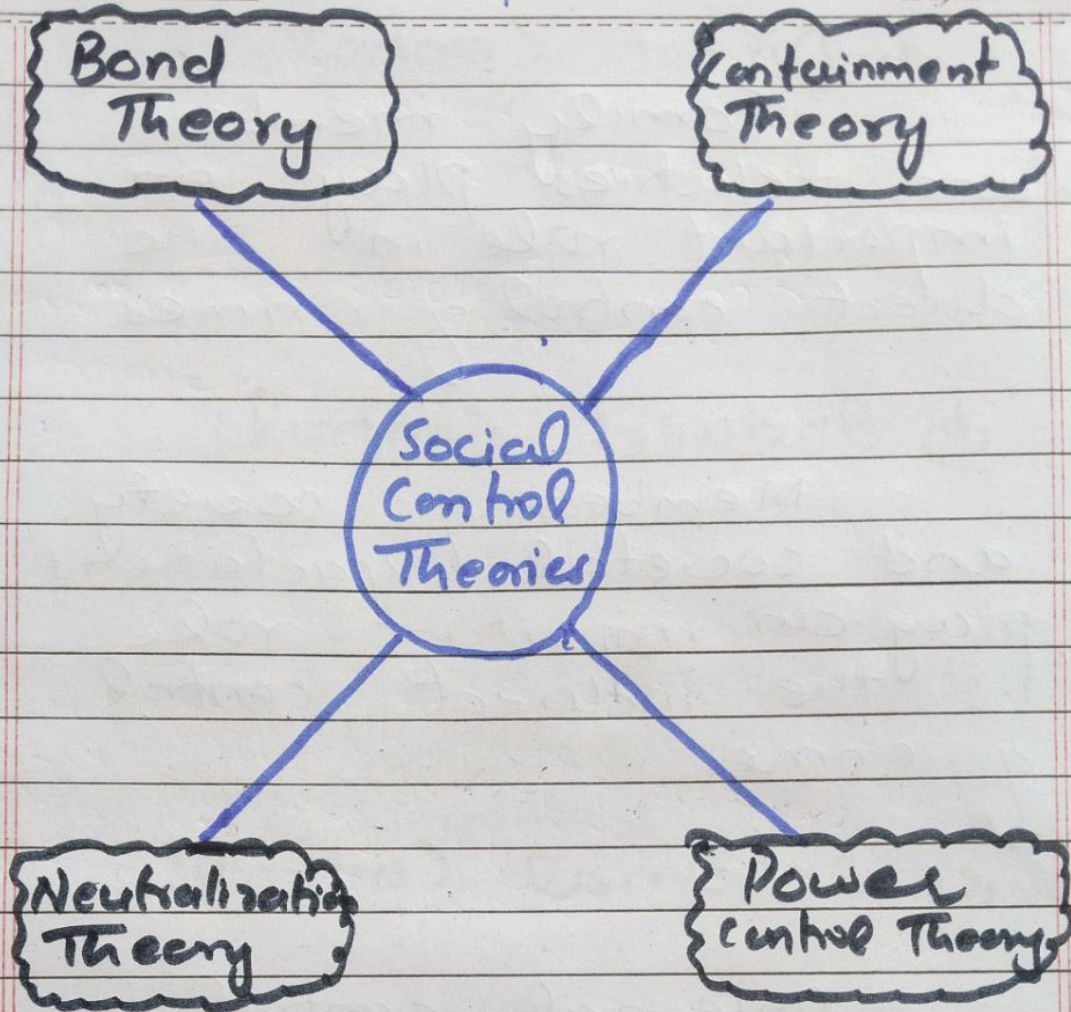 Bond
Theory
Containment
Theory
Social
Control
Theories
Neutralization
Theory
Power
Control Theory